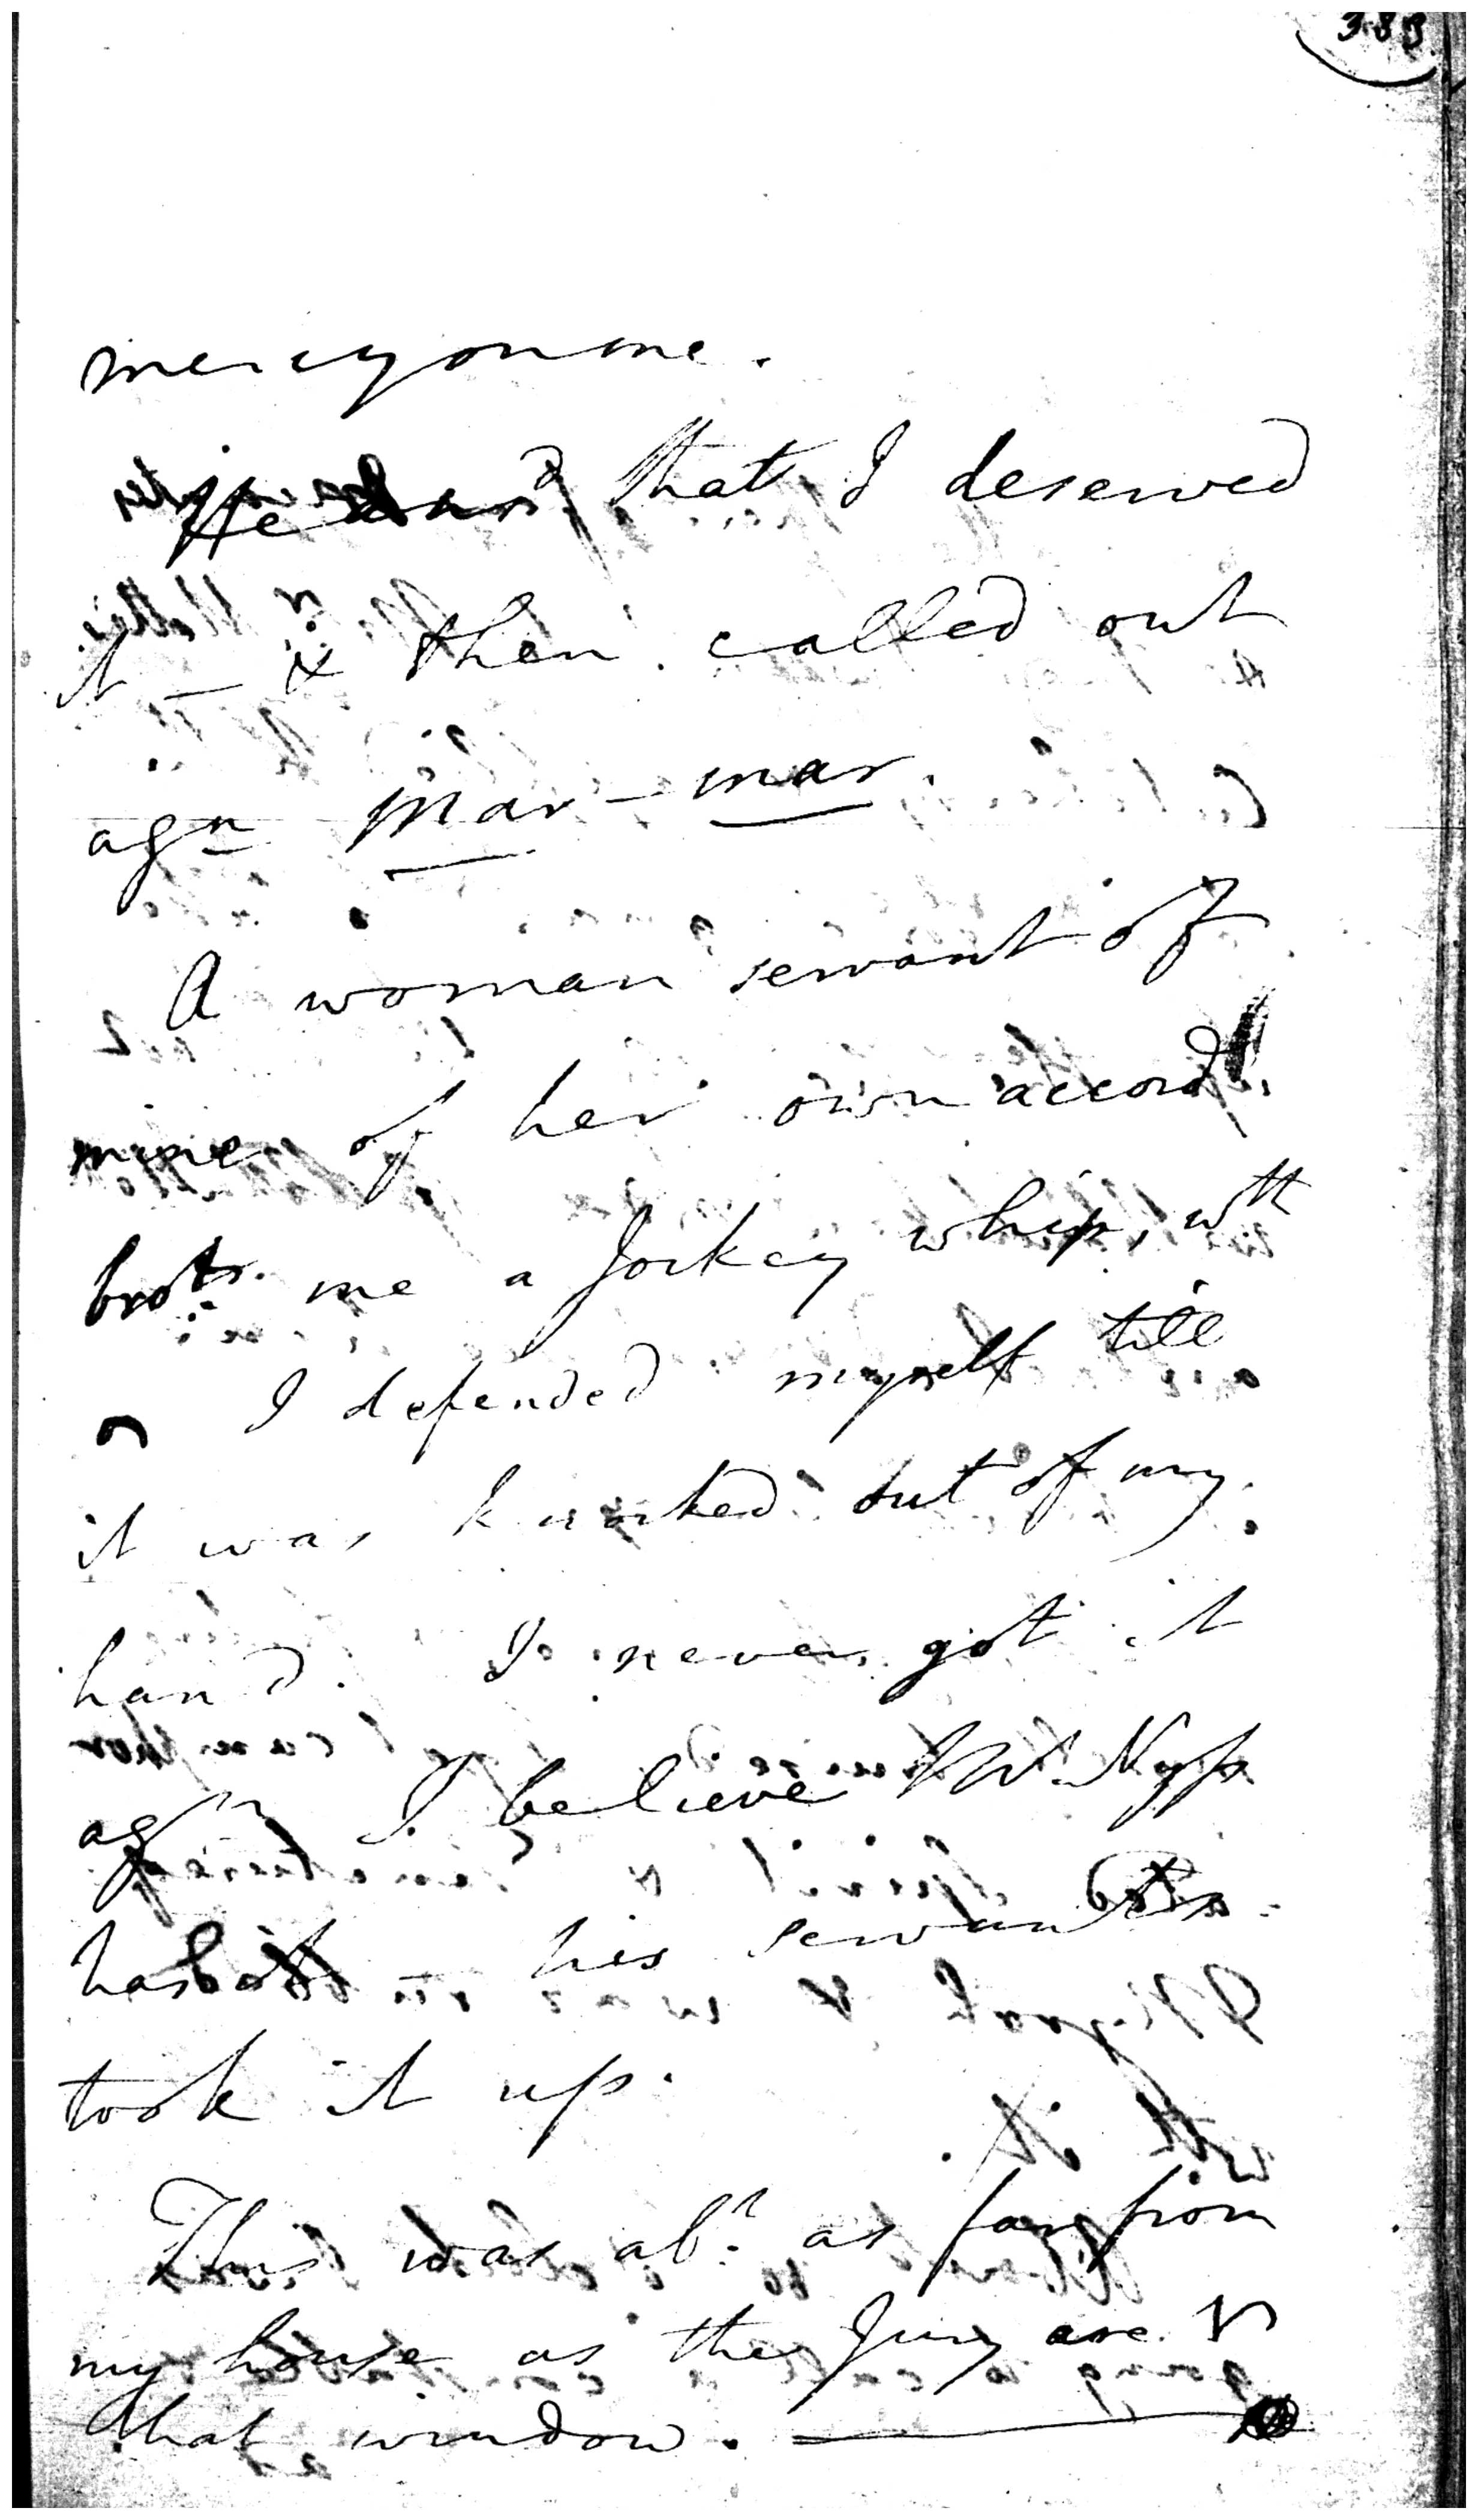 383
mercy on me.
He that I deserved
it — & then called out
agn mar — mar.
A woman servant of
mine of her own accord
brot me a Jockey whip, wth
I defended myself till
it was knocked out of my
hand. I never got it
agn I believe Mr
has it — his servants
took it up.
This was abt as far from
my house as the Jury are
that window. —